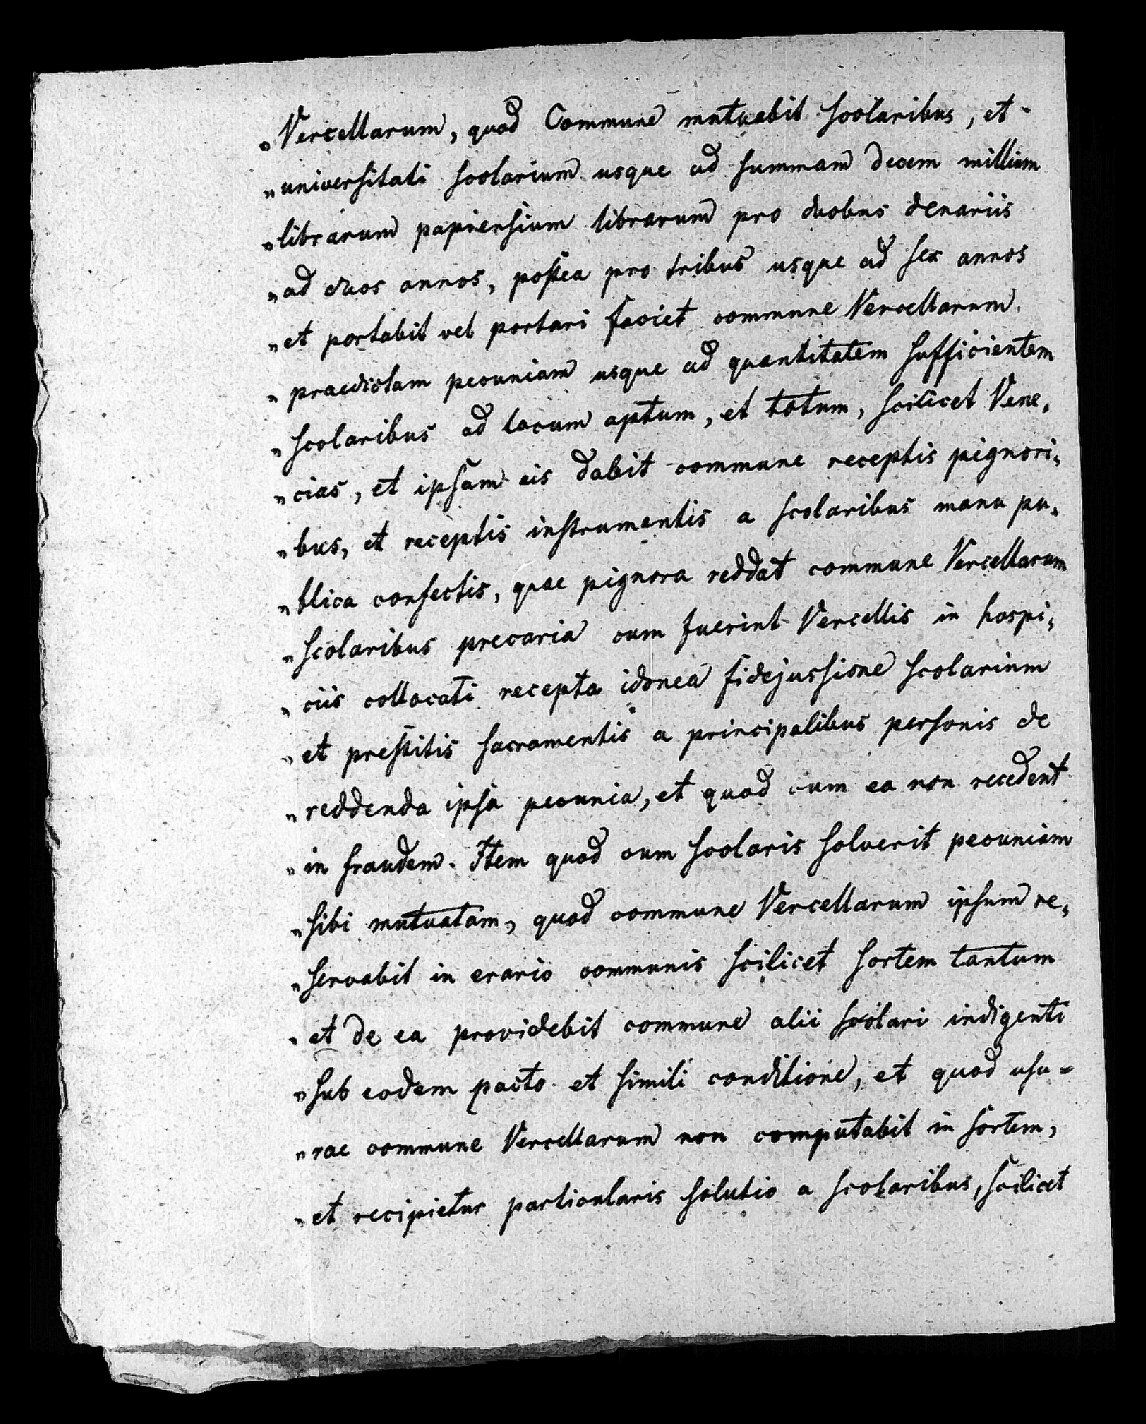 „Vercellarum, quod Commune mutuabit scolaribus, et
„universitati scolarium usque ad summam decem millium
„librarum papiensium librarum pro duobus denariis
„ad duos annos, postea pro tribus usque ad sex annos
„et portabit vel portari faciet commune Vercellarum
„praedictam pecuniam usque ad quantitatem sufficientem
„scolaribus ad locum aptum, et totum, scilicet Vene,
„cias, et ipsam eis dabit commune receptis pignori,
„bus, et receptis instrumentis a scolaribus manu pu,
„blica confectis, quae pignora reddat commune Vercellarum
„scolaribus precaria cum fuerint Vercellis in hospi,
„ciis collocati recepta idonea fidejussione scolarium
„et prestitis sacramentis a principalibus personis de
„reddenda ipsa pecunia, et quod cum ea non recedent
„in fraudem. Item quod cum scolaris solverit pecuniam
„sibi mutuatam, quod commune Vercellarum ipsum re,
„servabit in erario communis scilicet sortem tantum
„et de ea providebit commune alii scolari indigenti
„sub eodem pacto et simili conditione, et quod usu-
„rae commune Vercellarum non computabit in sortem,
„et recipietur particularis solutio a scolaribus, scilicet